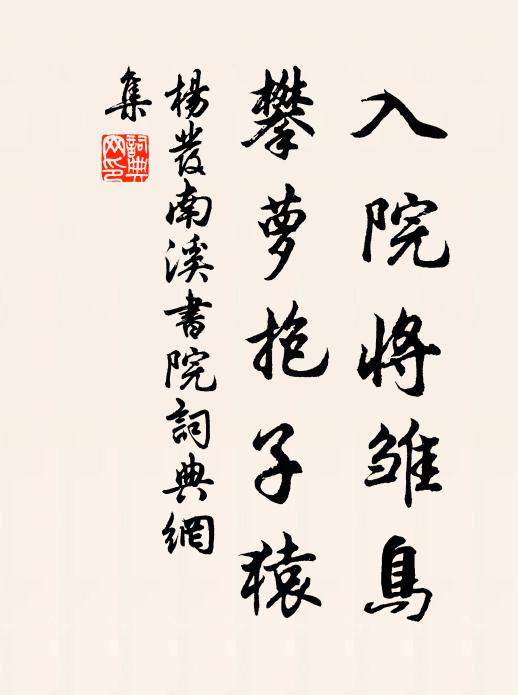 入院將雛鳥
攀蘿抱子猿
楊發南溪書院詞典網
集
詞典網印